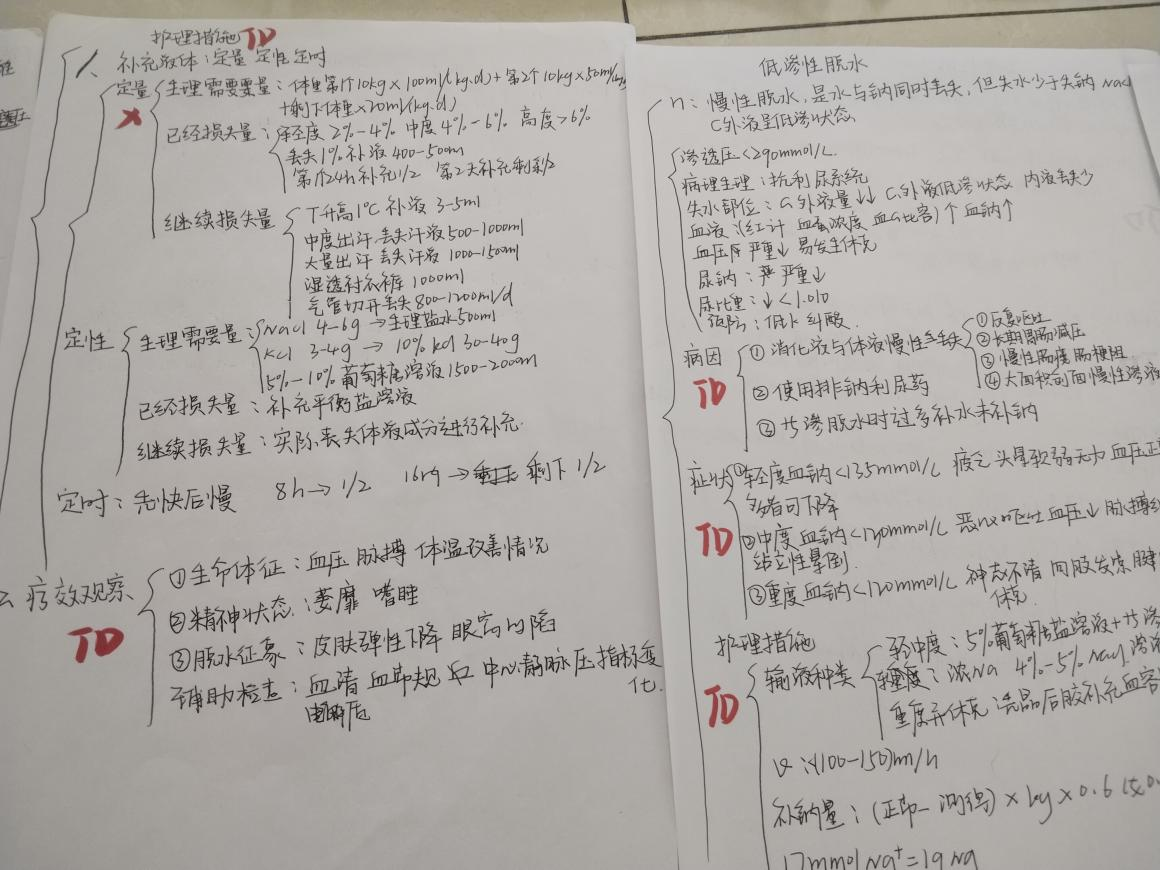 护理措施 TD
1、补充液体：定量 定性 定时
定量 生理需要量：体重第1个10kg×100ml/(kg.d)+第2个10kg×50ml/(kg
+剩下体重×20ml(kg.d)
已经损失量：轻度2%-4% 中度4%-6% 高度>6%
丢失1%补液400-500m
第1个24h补充1/2 第2天补充剩余1/2
继续损失量
T升高1℃ 补液 3-5ml
中度出汗 丢失汗液500-1000ml
大量出汗 丢失汗液 1000-1500ml
湿透衬衣裤 1000ml
气管切开丢失800-1200ml/d
定性 生理需要量：Nacl 4-6g→生理盐水500ml
Kcl 3-4g → 10% kcl 30-40g
5%-10%葡萄糖溶液1500-2000m
已经损失量：补充平衡盐溶液
继续损失量：实际丢失体液成分进行补充.
定时：先快后慢 8h→1/2 16h→ 剩下 1/2
2 疗效观察
①生命体征：血压 脉搏 体温改善情况
②精神状态：萎靡 嗜睡
TD
③脱水征象：皮肤弹性下降 眼窝凹陷
辅助检查：血清 血常规 中心静脉压指标变
化.
低渗性脱水
n：慢性脱水，是水与钠同时丢失，但失水少于失钠 Nacl
C外液呈低渗状态
渗透压<290mmol/L.
病理生理：抗利尿系统
失水部位：C外液量↓↓ C外液低渗状态 内液丢失少
血液：(红计 血蛋浓度 血C比容)↑血钠↑
血压 严重↓ 易发生休克
尿钠： 严重↓
尿比重：↓<1.010
病因
TD
①消化液与体液慢性丢失
①反复呕吐
②长期胃肠减压
③慢性肠瘘 肠梗阻
④大面积创面慢性渗液
②使用排钠利尿药
③高渗脱水时过多补水未补钠
症状 ①轻度血钠<135mmol/L 疲乏 头晕软弱无力 血压正
可下降
TD
②中度 血钠<130mmol/L 恶心呕吐 血压↓ 脉搏细
站立性晕倒.
③重度血钠<120mmol/L 神志不清 四肢发凉 腱
休克.
护理措施
TD
输液种类
轻中度：5%葡萄糖盐溶液+高渗
重度：浓Na 4%-5% Nacl 溶液
重度并休克：先晶后胶补充血容
V：(100-150)ml/h
补钠量：(正常-测得)×kg×0.6
17mmol Na⁺=1g Na